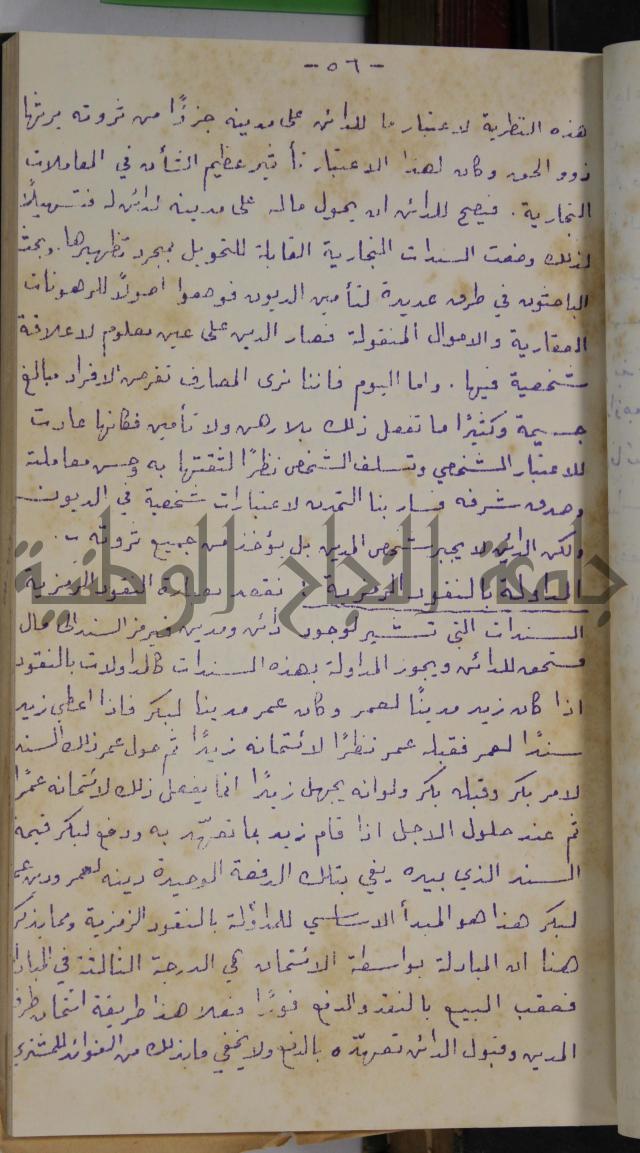 - ٥٦ -
هذه النظرية لاعتبار ما للدائن على مدينه جزءًا من ثروته يرثها
ذوو الحق وكان لهذا الاعتبار تأثير عظيم الشأن في المعاملات
التجارية . فيصح للدائن ان يحول ماله على مدينه لدائن له فتسهيلًا
لذلك وضعت السندات التجارية القابلة للتحويل بمجرد تظهيرها. وبحث
الباحثون في طرق عديدة لتأمين الديون فوضعوا اصولًا للرهونات
العقارية والاموال المنقولة فصار الدين على عين معلوم لا علاقة
شخصية فيها . واما اليوم فاننا نرى المصارف تقرض الافراد مبالغ
جسيمة وكثيرًا ما تفعل ذلك بلا رهن ولا تأمين فكانها عادت
للاعتبار الشخصي وتسلف الشخص نظرًا لثقتها به وحسن معاملته
وصدق شرفه فسار بنا التمدن لاعتبارات شخصية في الديون
ولكن الدائن لا يجبر شخص المدين بل يؤخذ من جميع ثروته .
المداولة بالنقود الرمزية : نقصد بعبارة النقود الرمزية
السندات التي تشير لوجود دائن ومدين فيرمز السند الى مال
مستحق للدائن ويجوز المداولة بهذه السندات كالمداولات بالنقود
اذا كان زيد مدينًا لعمر وكان عمر مدينا لبكر فاذا اعطى زيد
سندًا لعمر فقبله عمر نظرًا لائتمانه زيدًا ثم حول عمر ذلك السند
لامر بكر وقبله بكر ولو انه يجهل زيدًا انما يفعل ذلك لائتمانه عمرًا
ثم عند حلول الاجل اذا قام زيد بما تعهّد به ودفع لبكر قيمة
السند الذي بيده يفي بتلك الدفعة الوحيدة دينه لعمر ودين عمر
لبكر هذا هو المبدأ الاساسي للمداولة بالنقود الرمزية ومما يذكر
همنا ان المبادلة بواسطة الائتمان هي الدرجة الثالثة في المبادلة
فعقب البيع بالنقد والدفع فورًا هذا طريقة ائتمان طرف
المدين وقبول الدائن تعهّده بالدفع ولا يخفي ما بذلك من الفوائد للمشتري
جامعة النجاح الوطنية